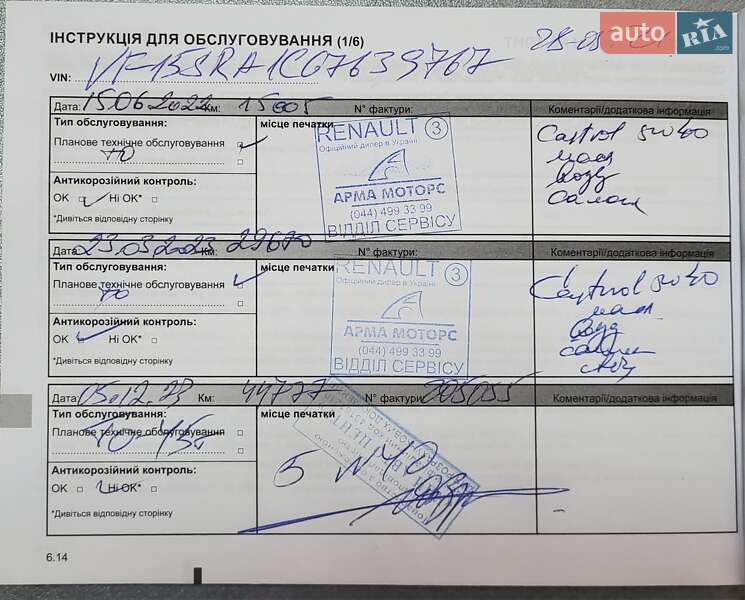 auto RIA.com
ІНСТРУКЦІЯ ДЛЯ ОБСЛУГОВУВАННЯ (1/6)
VIN: VF15SRA1C67639767
Дата: 15.06.2022 Км: 15005 N° фактури: Коментарії/додаткова інформація
Тип обслуговування:
Планове технічне обслуговування
ТО
Антикорозійний контроль:
ОК Ні ОК*
*Дивіться відповідну сторінку
місце печатки
RENAULT 3
Офіційний дилер в Україні
АРМА МОТОРС
(044) 499 33 99
ВІДДІЛ СЕРВІСУ
Castrol 5w40
масл
возд
салон
Дата: 23.03.2023 Км: 29670 N° фактури: Коментарії/додаткова інформація
Тип обслуговування:
Планове технічне обслуговування
ТО
Антикорозійний контроль:
ОК Ні ОК*
*Дивіться відповідну сторінку
місце печатки
RENAULT 3
Офіційний дилер в Україні
АРМА МОТОРС
(044) 499 33 99
ВІДДІЛ СЕРВІСУ
Castrol 5w40
масл
возд
салон
Дата: 05.12.23 Км: 44777 N° фактури: 205055 Коментарії/додаткова інформація
Тип обслуговування:
Планове технічне обслуговування
ТО-45т
Антикорозійний контроль:
ОК Ні ОК*
*Дивіться відповідну сторінку
місце печатки
5W40
6.14